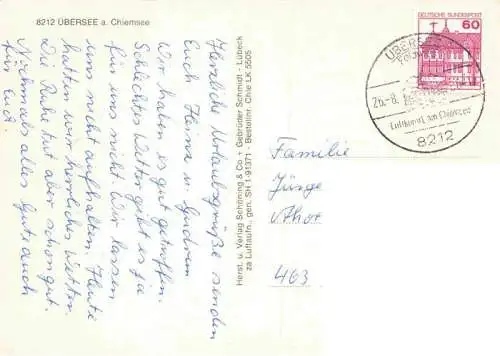 8212 ÜBERSEE a. Chiemsee
Herzliche Urlaubsgrüße senden
Euch Heinz u. Gudrun
Wir haben es gut getroffen.
Schlechtes Wetter gibt es ja
für uns nicht. Wir lassen
uns nicht aufhalten. Heute
hatten wir herrliches Wetter.
Die Ruhe tut aber schon gut.
Nochmals alles Gute auch
für Euch
Herst. u. Verlag Schöning & Co + Gebrüder Schmidt - Lübeck
za Luftaufn., gen. SH 1-91371 - Bestellnr. Chie LK 5505
DEUTSCHE BUNDESPOST
60
ÜBERSEE
26.-8.
Luftkurort am Chiemsee
8212
Familie
Jürge
Thor
463